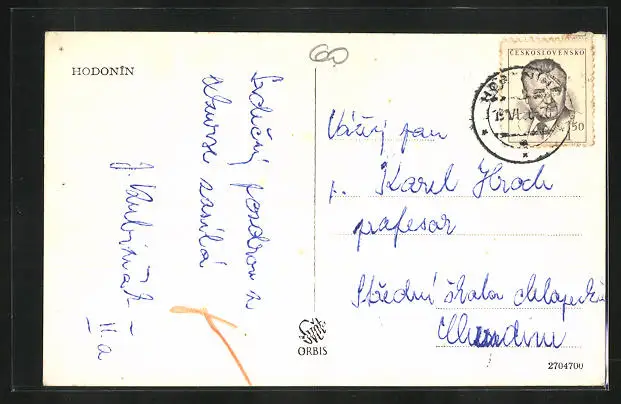 HODONÍN
60
Srdečný pozdrav z
zasílá
J. Kubiňák
II.a
ČESKOSLOVENSKO
1.50
Vážený pan
p. Karel Hroch
profesor
Střední škola chlapecká
Chrudim
ORBIS
2704700